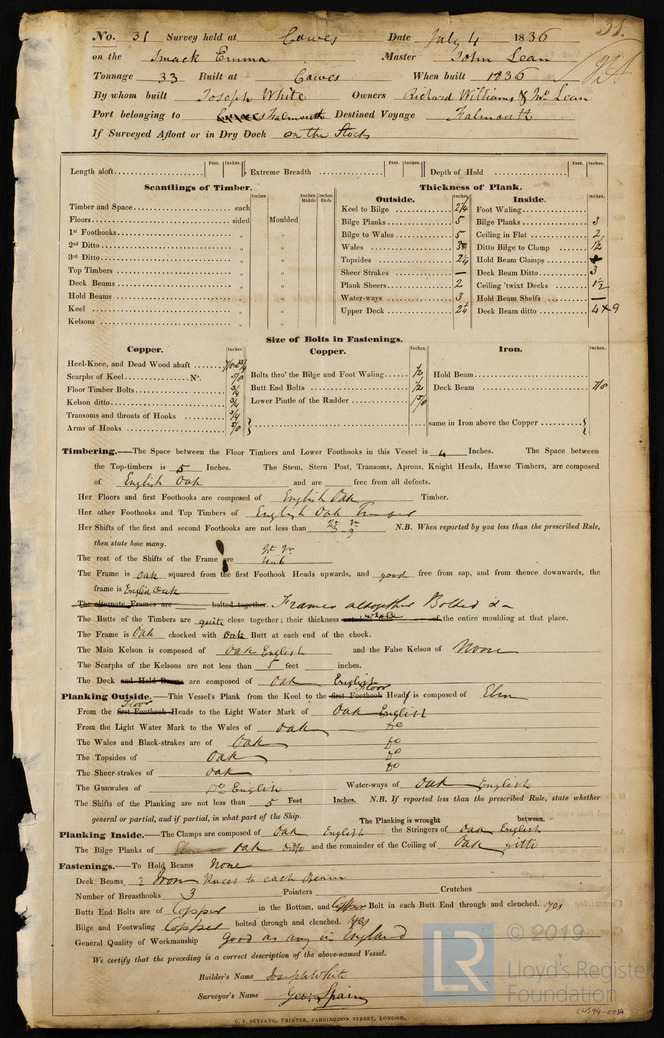 38.
No. 31 Survey held at Cowes Date July 4 1836
on the Smack Emma Master John Lean
Tonnage 33 Built at Cowes When built 1836
By whom built Joseph White Owners Richard Williams & Mr Lean
Port belonging to Cowes Falmouth Destined Voyage Falmouth
If Surveyed Afloat or in Dry Dock on the Stocks
Length aloft Feet. Inches. Extreme Breadth Feet. Inches. Depth of Hold Feet. Inches.
Scantlings of Timber. Thickness of Plank.
Inches Inches Middle Inches Ends Outside. Inches. Inside. Inches.
Timber and Space each Keel to Bilge 2¼ Foot Waling
Floors sided Moulded Bilge Planks 5 Bilge Planks 3
1st Foothooks „ „ Bilge to Wales 5 Ceiling in Flat 2
2nd Ditto „ „ Wales 3 Ditto Bilge to Clamp 1½
3rd Ditto „ „ Topsides 2¼ Hold Beam Clamps
Top Timbers „ „ Sheer Strakes — Deck Beam Ditto 3
Deck Beams „ „ Plank Sheers 2 Ceiling 'twixt Decks 1½
Hold Beams „ „ Water-ways 3 Hold Beam Shelfs —
Keel „ „ Upper Deck 2¼ Deck Beam ditto 4 x 9
Kelsons „ „
Size of Bolts in Fastenings.
Copper. Inches. Copper. Inches. Iron. Inches.
Heel-Knee, and Dead Wood abaft
Scarphs of Keel No. 5/8 Bolts thro' the Bilge and Foot Waling ½ Hold Beam
Floor Timber Bolts 3/4 Butt End Bolts ½ Deck Beam 7/8
Kelson ditto 3/4 Lower Pintle of the Rudder
Transoms and throats of Hooks 3/4
Arms of Hooks 5/8 same in Iron above the Copper
Timbering.—The Space between the Floor Timbers and Lower Foothooks in this Vessel is 4 Inches. The Space between
the Top-timbers is 5 Inches. The Stem, Stern Post, Transoms, Aprons, Knight Heads, Hawse Timbers, are composed
of English Oak and are free from all defects.
Her Floors and first Foothooks are composed of English Oak Timber.
Her other Foothooks and Top Timbers of English Oak Timber
Her Shifts of the first and second Foothooks are not less than N.B. When reported by you less than the prescribed Rule,
then state how many.
The rest of the Shifts of the Frame are
The Frame is oak squared from the first Foothook Heads upwards, and good free from sap, and from thence downwards, the
frame is English Oak
The alternate Frames are bolted together. Frames altogether Bolted
The Butts of the Timbers are quite close together; their thickness of the entire moulding at that place.
The Frame is Oak chocked with Oak Butt at each end of the chock.
The Main Kelson is composed of Oak English and the False Kelson of None
The Scarphs of the Kelsons are not less than 5 feet inches.
The Deck and Hold Beams are composed of Oak English
Planking Outside.—This Vessel's Plank from the Keel to the first Foothook Floor Heads is composed of Elm
From the first Foothook Floor Heads to the Light Water Mark of Oak English
From the Light Water Mark to the Wales of Oak Do
The Wales and Black-strakes are of Oak Do
The Topsides of Oak Do
The Sheer-strakes of Oak Do
The Gunwales of Do English Water-ways of Oak English
The Shifts of the Planking are not less than 5 Feet Inches. N.B. If reported less than the prescribed Rule, state whether
general or partial, and if partial, in what part of the Ship. The Planking is wrought between.
Planking Inside.—The Clamps are composed of Oak English the Stringers of Oak English
The Bilge Planks of Oak Ditto and the remainder of the Ceiling of Oak Ditto
Fastenings.—To Hold Beams None
Deck Beams 2 Iron Knees to each Beam
Number of Breasthooks 3 Pointers Crutches
Butts End Bolts are of Copper in the Bottom, and Copper Bolt in each Butt End through and clenched. yes
Bilge and Footwaling Copper bolted through and clenched. yes
General Quality of Workmanship Good as any in England
We certify that the preceding is a correct description of the above-named Vessel.
Builder's Name Joseph White
Surveyor's Name Geo. Spain
C. F. SEYFANG, PRINTER, FARRINGDON STREET, LONDON.
LR © 2019
Lloyd's Register
Foundation
LWS94-0034